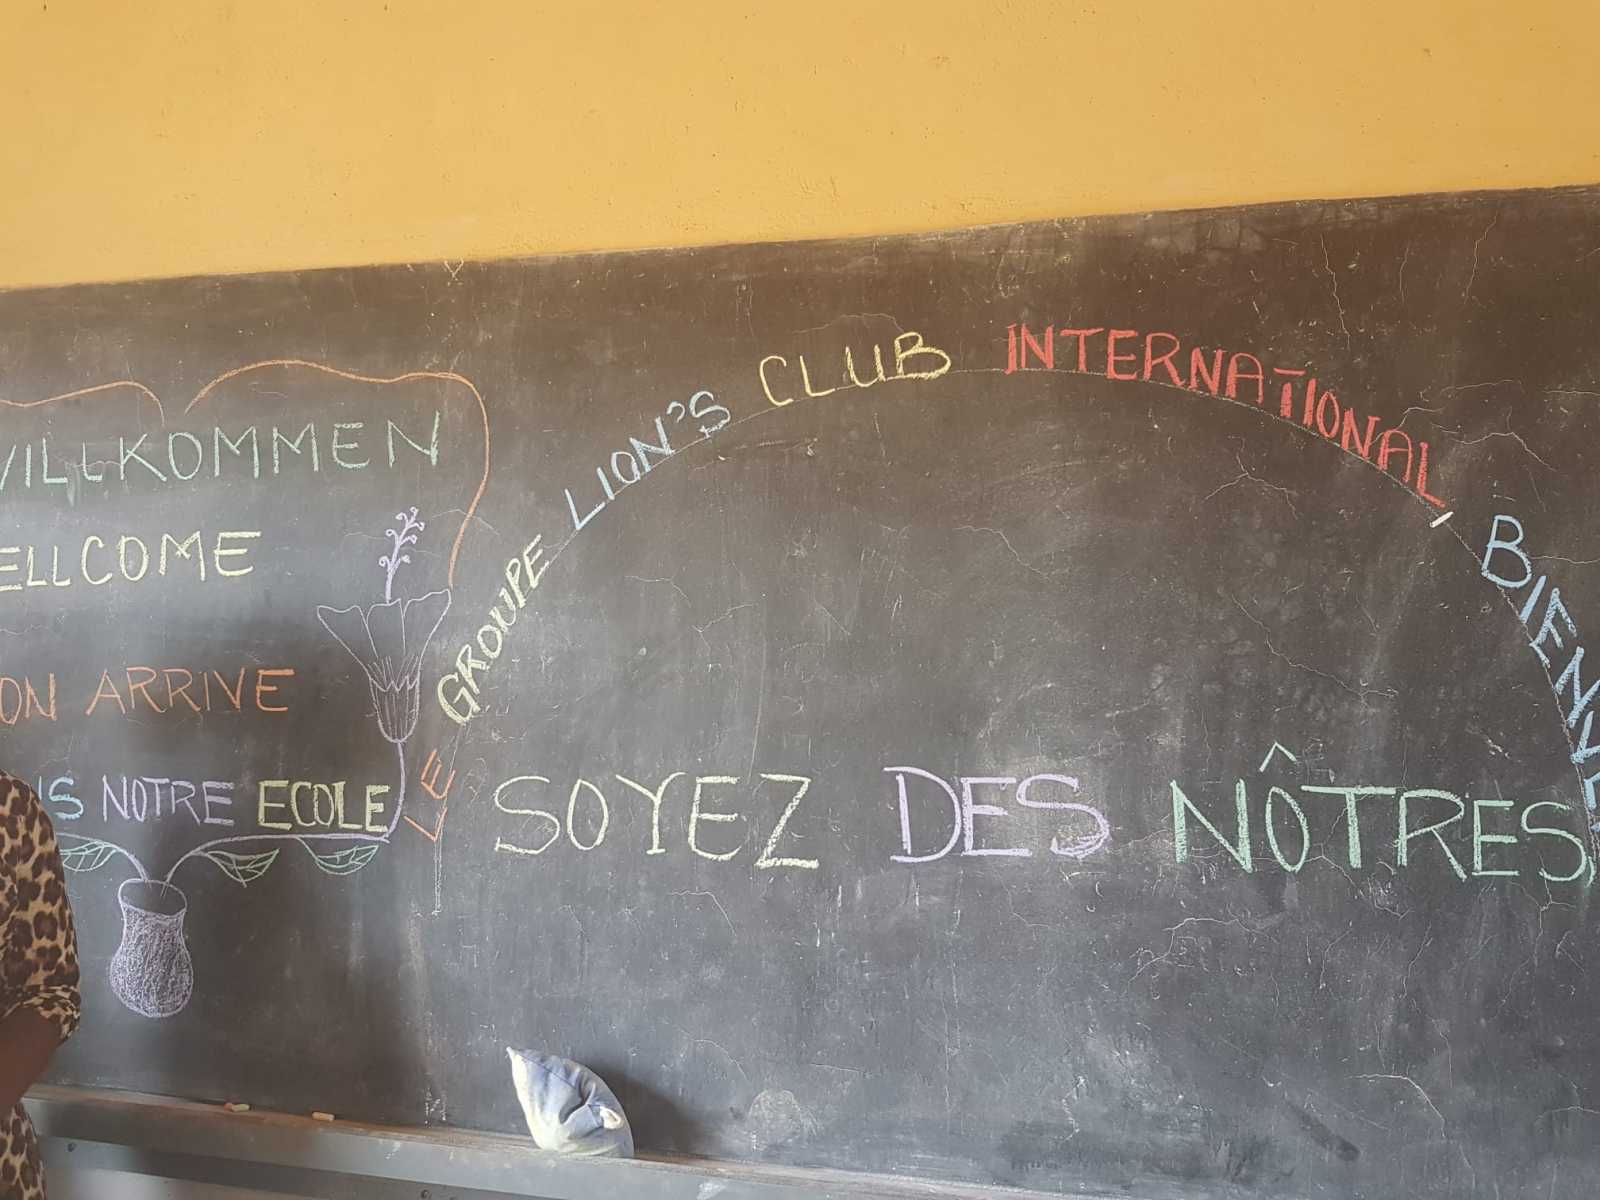 WILLKOMMEN
ELLCOME
ON ARRIVE
NS NOTRE ECOLE
LE GROUPE LION'S CLUB INTERNATIONAL BIENVE
SOYEZ DES NÔTRES